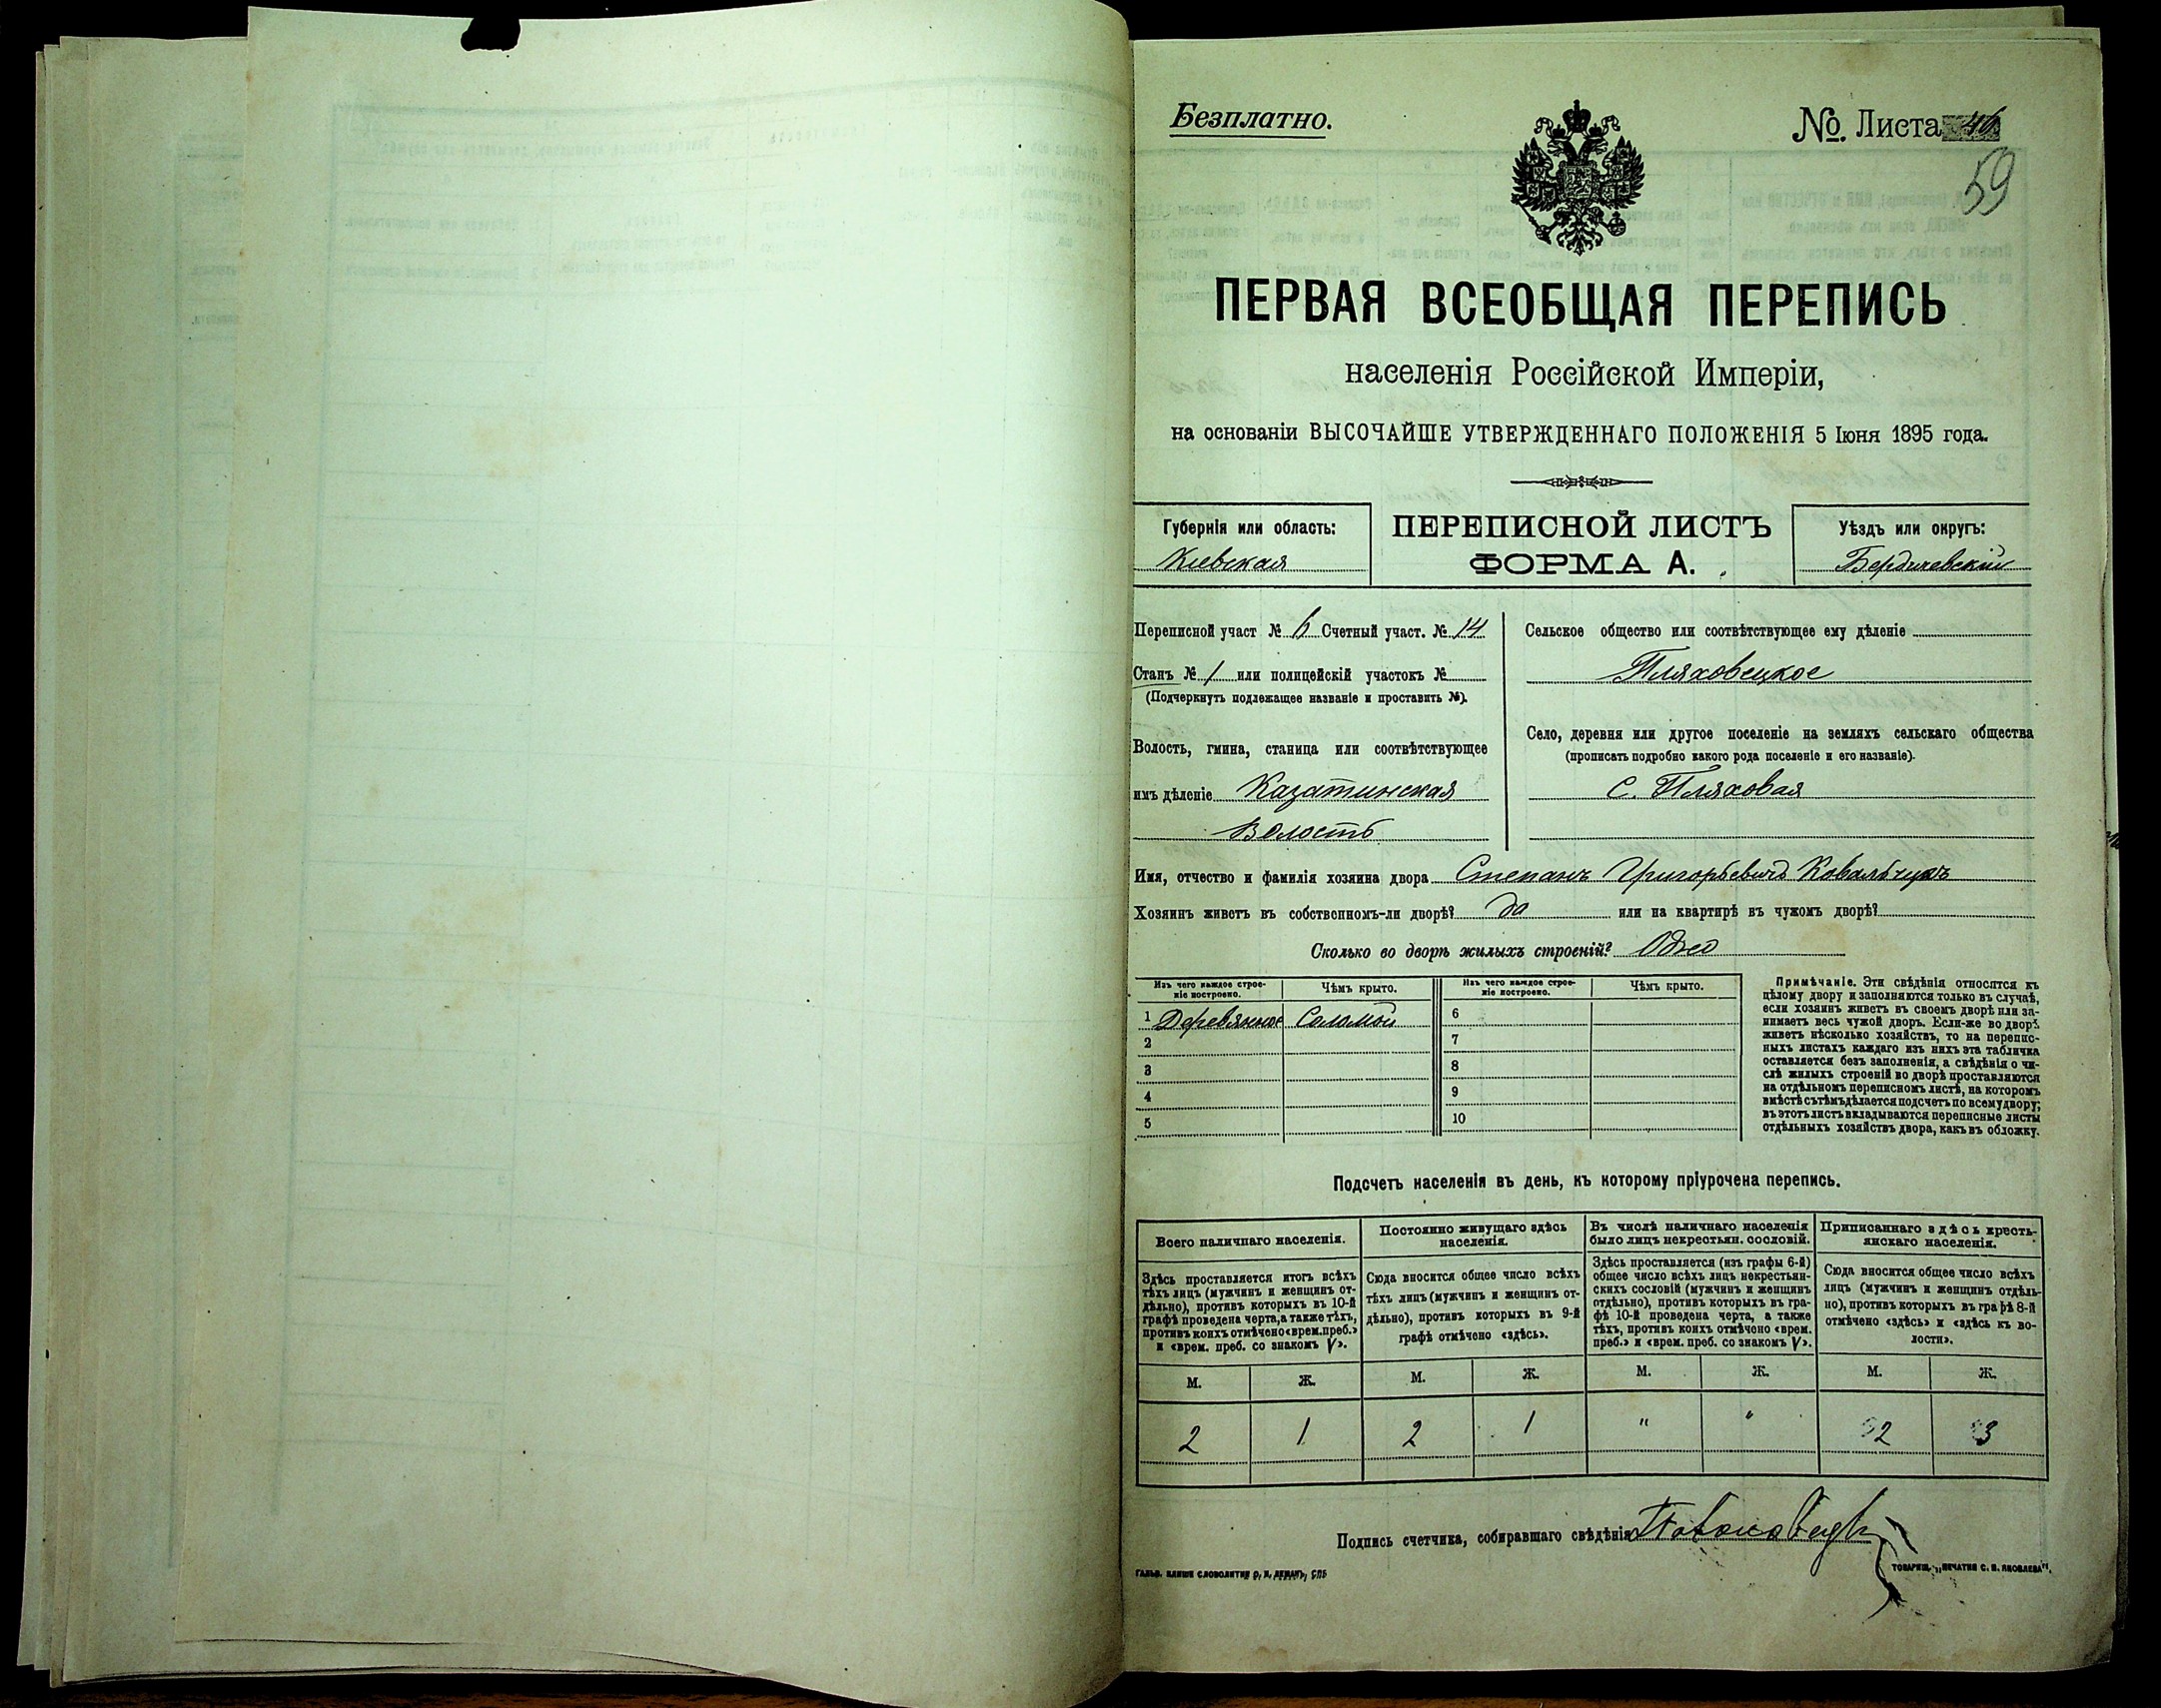 Безплатно.
№ Листа 46
59
ПЕРВАЯ ВСЕОБЩАЯ ПЕРЕПИСЬ
населенія Россійской Имперіи,
на основаніи ВЫСОЧАЙШЕ УТВЕРЖДЕННАГО ПОЛОЖЕНІЯ 5 Іюня 1895 года.
Губернія или область:
Кіевская
ПЕРЕПИСНОЙ ЛИСТЪ
ФОРМА А.
Уѣздъ или округъ:
Бердичевскій
Переписной участ № 6 Счетный участ. № 14
Станъ № 1 или полицейскій участокъ №
(Подчеркнуть подлежащее названіе и проставить №).
Волость, гмина, станица или соотвѣтствующее
имъ дѣленіе Казатинская
Волость
Сельское общество или соотвѣтствующее ему дѣленіе
Пляховецкое
Село, деревня или другое поселеніе на земляхъ сельскаго общества
(прописать подробно какого рода поселеніе и его названіе).
С. Пляховая
Имя, отчество и фамилія хозяина двора Степанъ Григорьевичъ Ковальчукъ
Хозяинъ живетъ въ собственномъ-ли дворѣ? да или на квартирѣ въ чужомъ дворѣ?
Сколько во дворѣ жилыхъ строеній? Одно
Изъ чего каждое строе-
ніе построено.
Чѣмъ крыто.
Изъ чего каждое строе-
ніе построено.
Чѣмъ крыто.
1 Деревянное Соломой 6
2 7
3 8
4 9
5 10
Примѣчаніе. Эти свѣдѣнія относятся къ
цѣлому двору и заполняются только въ случаѣ,
если хозяинъ живетъ въ своемъ дворѣ или за-
нимаетъ весь чужой дворъ. Если-же во дворѣ
живетъ нѣсколько хозяйствъ, то на перепис-
ныхъ листахъ каждаго изъ нихъ эта табличка
оставляется безъ заполненія, а свѣдѣнія о чи-
слѣ жилыхъ строеній во дворѣ проставляются
на отдѣльномъ переписномъ листѣ, на которомъ
вмѣстѣ съ тѣмъ дѣлается подсчетъ по всему двору;
въ этотъ листъ вкладываются переписные листы
отдѣльныхъ хозяйствъ двора, какъ въ обложку.
Подсчетъ населенія въ день, къ которому пріурочена перепись.
Всего наличнаго населенія.
Здѣсь проставляется итогъ всѣхъ
тѣхъ лицъ (мужчинъ и женщинъ от-
дѣльно), противъ которыхъ въ 10-й
графѣ проведена черта, а также тѣхъ,
противъ коихъ отмѣчено «врем. преб.»
и «врем. преб. со знакомъ V».
Постоянно живущаго здѣсь
населенія.
Сюда вносится общее число всѣхъ
тѣхъ лицъ (мужчинъ и женщинъ от-
дѣльно), противъ которыхъ въ 9-й
графѣ отмѣчено «здѣсь».
Въ числѣ наличнаго населенія
было лицъ некрестьян. сословій.
Здѣсь проставляется (изъ графы 6-й)
общее число всѣхъ лицъ некрестьян-
скихъ сословій (мужчинъ и женщинъ
отдѣльно), противъ которыхъ въ гра-
фѣ 10-й проведена черта, а также
тѣхъ, противъ коихъ отмѣчено «врем.
преб.» и «врем. преб. со знакомъ V».
Приписаннаго здѣсь кресть-
янскаго населенія.
Сюда вносится общее число всѣхъ
лицъ (мужчинъ и женщинъ отдѣль-
но), противъ которыхъ въ графѣ 8-й
отмѣчено «здѣсь» и «здѣсь къ во-
лости».
М. Ж. М. Ж. М. Ж. М. Ж.
2 1 2 1 " " 2 3
Подпись счетчика, собиравшаго свѣдѣнія
ГАЛЬВ. КЛИШЕ СЛОВОЛИТНИ О. И. ЛЕМАНЪ, СПБ
ТОВАРИЩ. „ПЕЧАТНЯ С. П. ЯКОВЛЕВА".